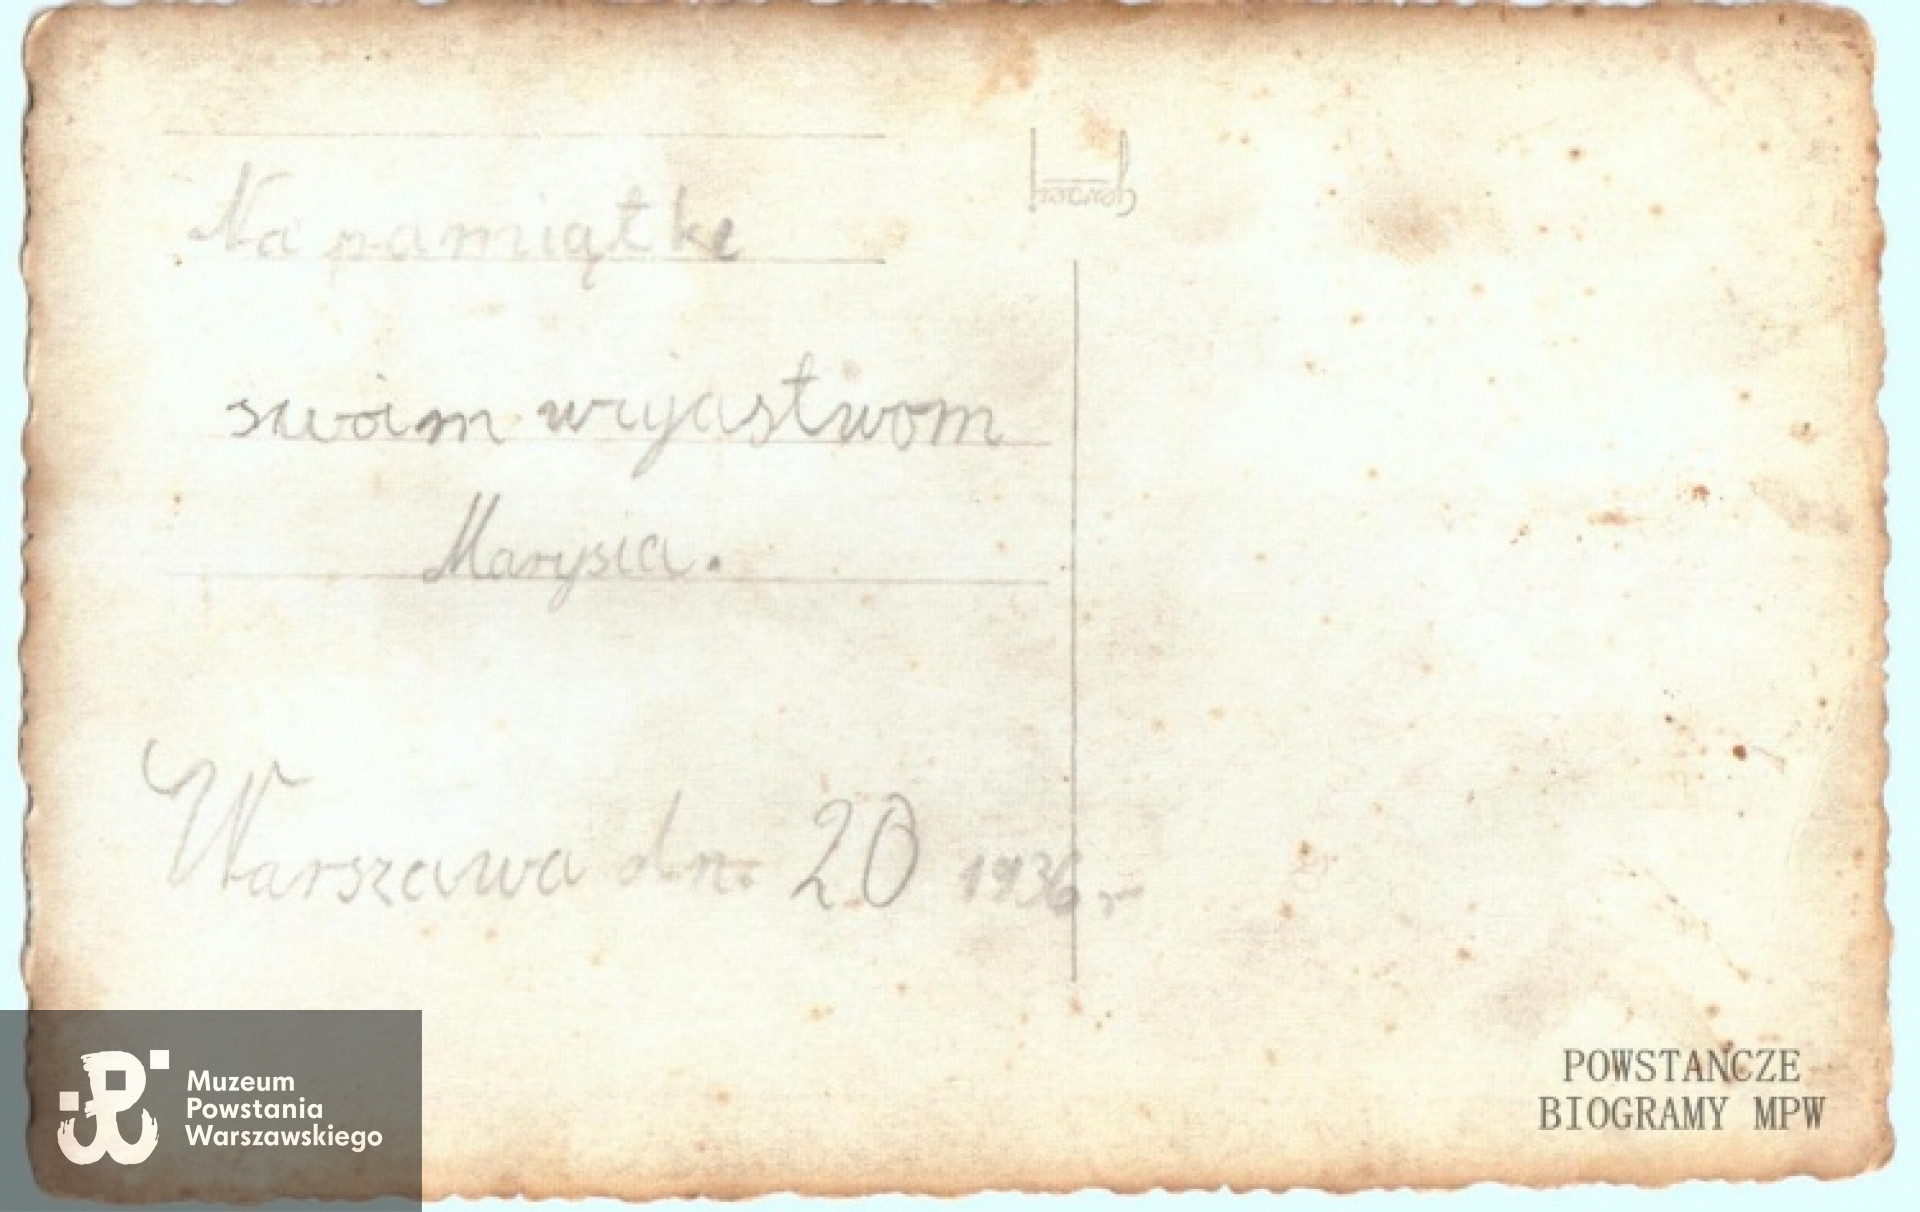 Na pamiątke
swoim wyjastwom
Marysia.
Warszawa dn. 20 1936 r
Muzeum
Powstania
Warszawskiego
POWSTAŃCZE
BIOGRAMY MPW